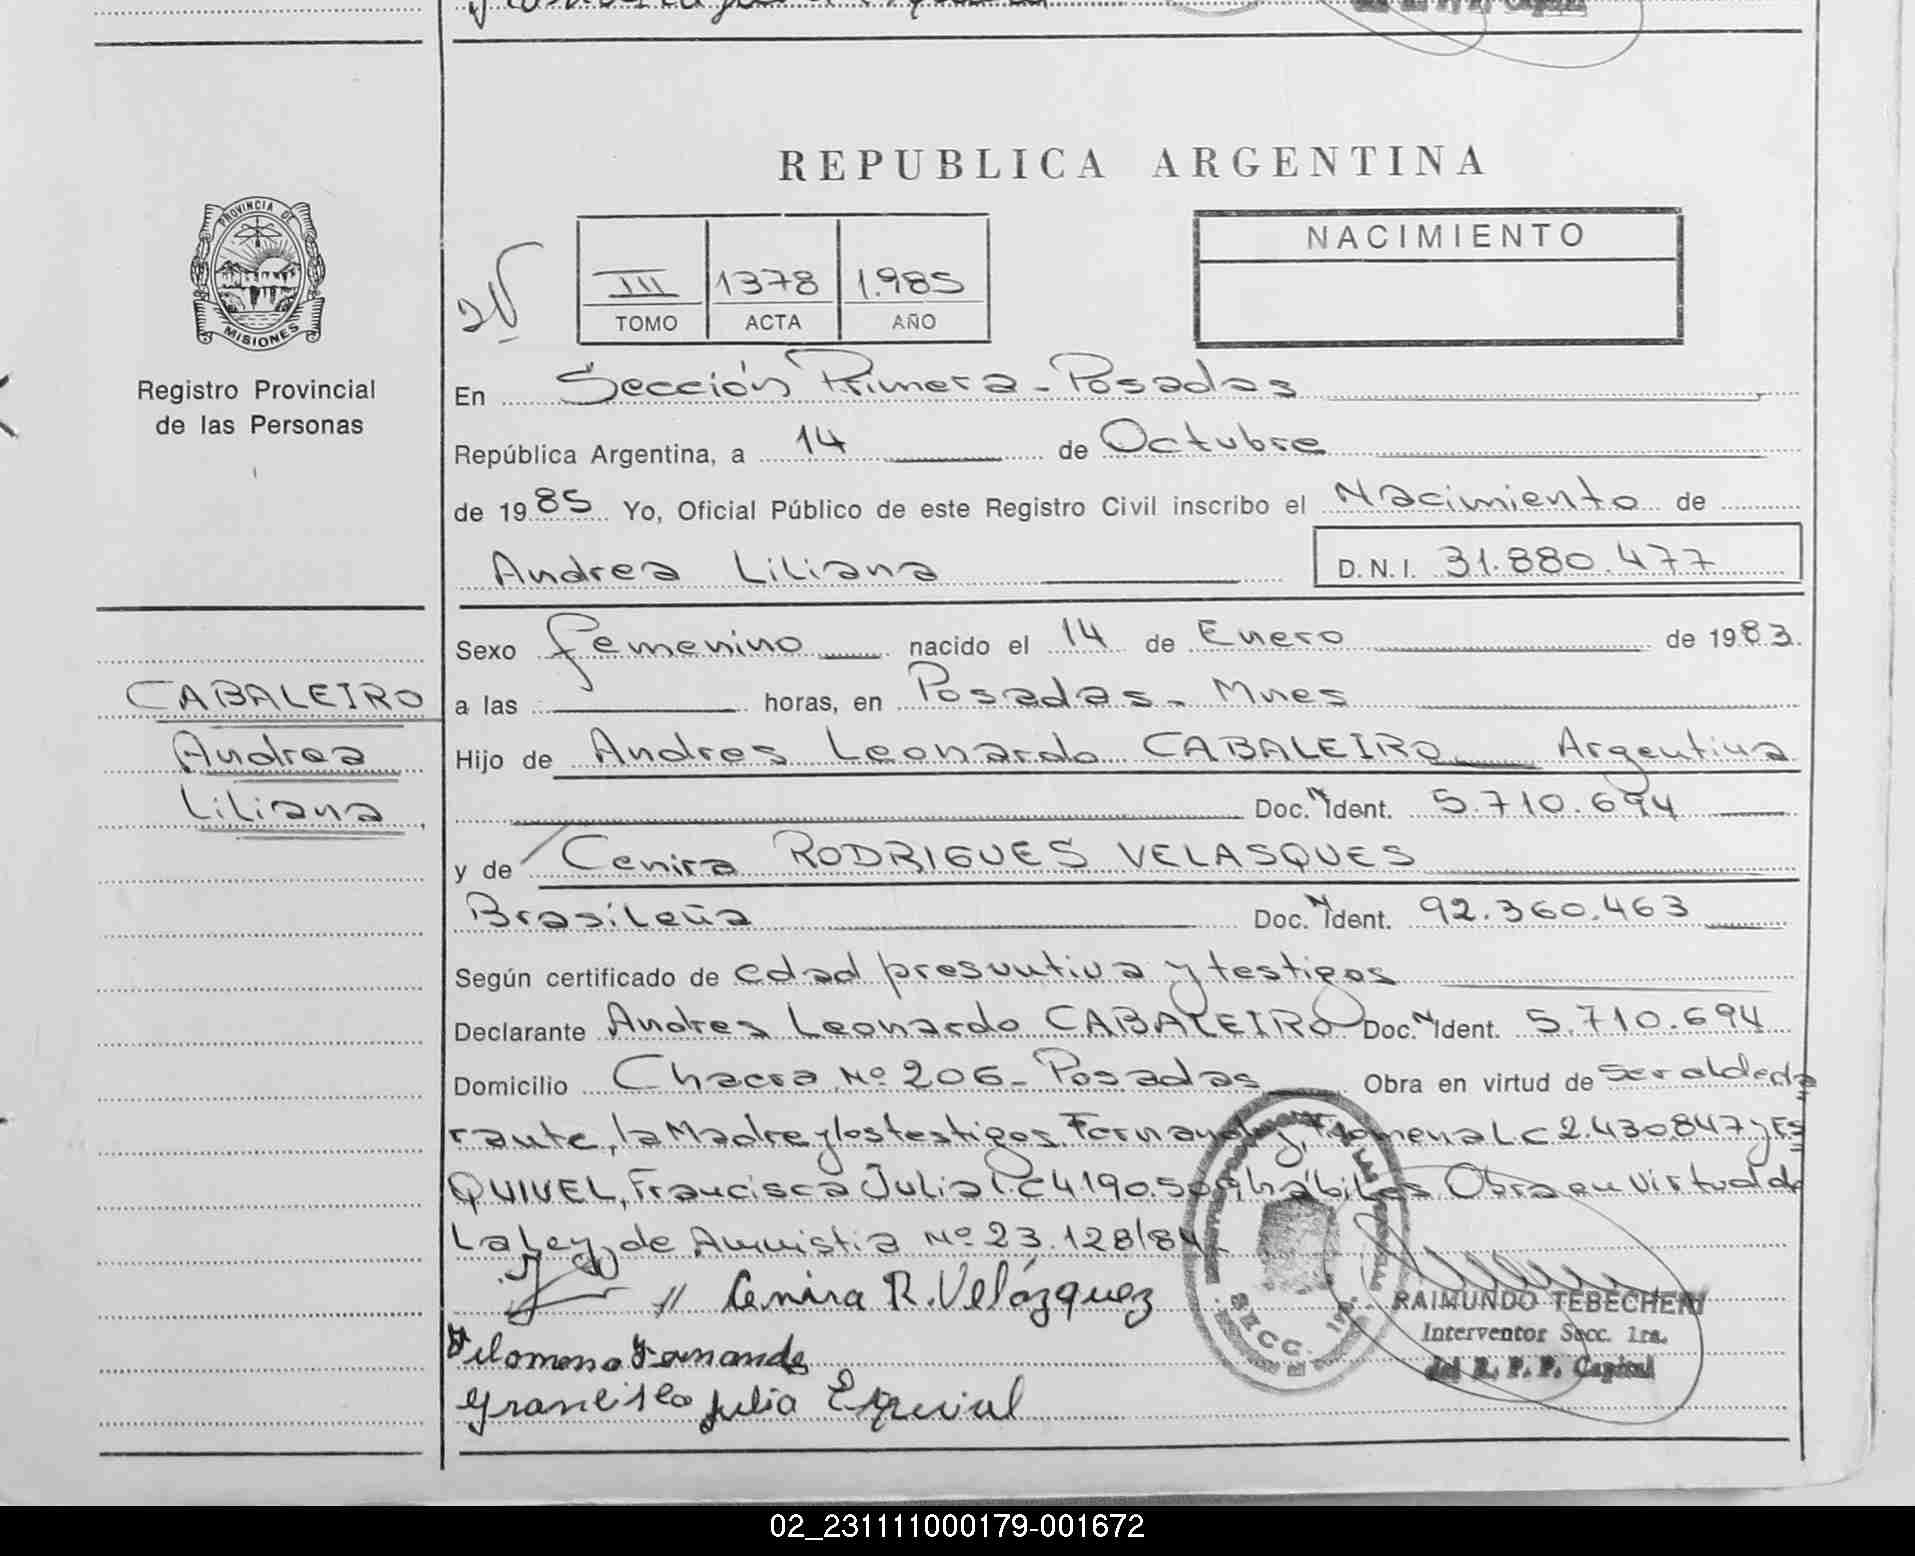 REPUBLICA ARGENTINA
PROVINCIA DE
MISIONES
Registro Provincial
de las Personas
III 1378 1.985
TOMO ACTA AÑO
NACIMIENTO
En Sección Primera - Posadas
República Argentina, a 14 de Octubre
de 1985 Yo, Oficial Público de este Registro Civil inscribo el Nacimiento de
Andrea Liliana D.N.I. 31.880.477
CABALEIRO
Andrea
Liliana
Sexo femenino nacido el 14 de Enero de 1983.
a las horas, en Posadas - Mnes
Hijo de Andres Leonardo CABALEIRO Argentina
Doc. N Ident. 5.710.694
y de Cenira RODRIGUES VELASQUES
Brasileña Doc. N Ident. 92.360.463
Según certificado de edad presuntiva y testigos
Declarante Andres Leonardo CABALEIRO Doc. N Ident. 5.710.694
Domicilio Chacra Nº 206 - Posadas Obra en virtud de ser el decla
rante, la Madre y los testigos Fernandez, Filomena L C 2.430.847 y ES
QUIVEL, Francisca Julia L C 4190.509 hábiles Obra en virtud de
La Ley de Amnistia Nº 23.128/84
// Cenira R. Velázquez
Filomena Fernande
Francisca Julia Esquivel
SECC. 1ra.
RAIMUNDO TEBECHERI
Interventor Secc. 1ra.
del R. P. P. Capital
02_231111000179-001672